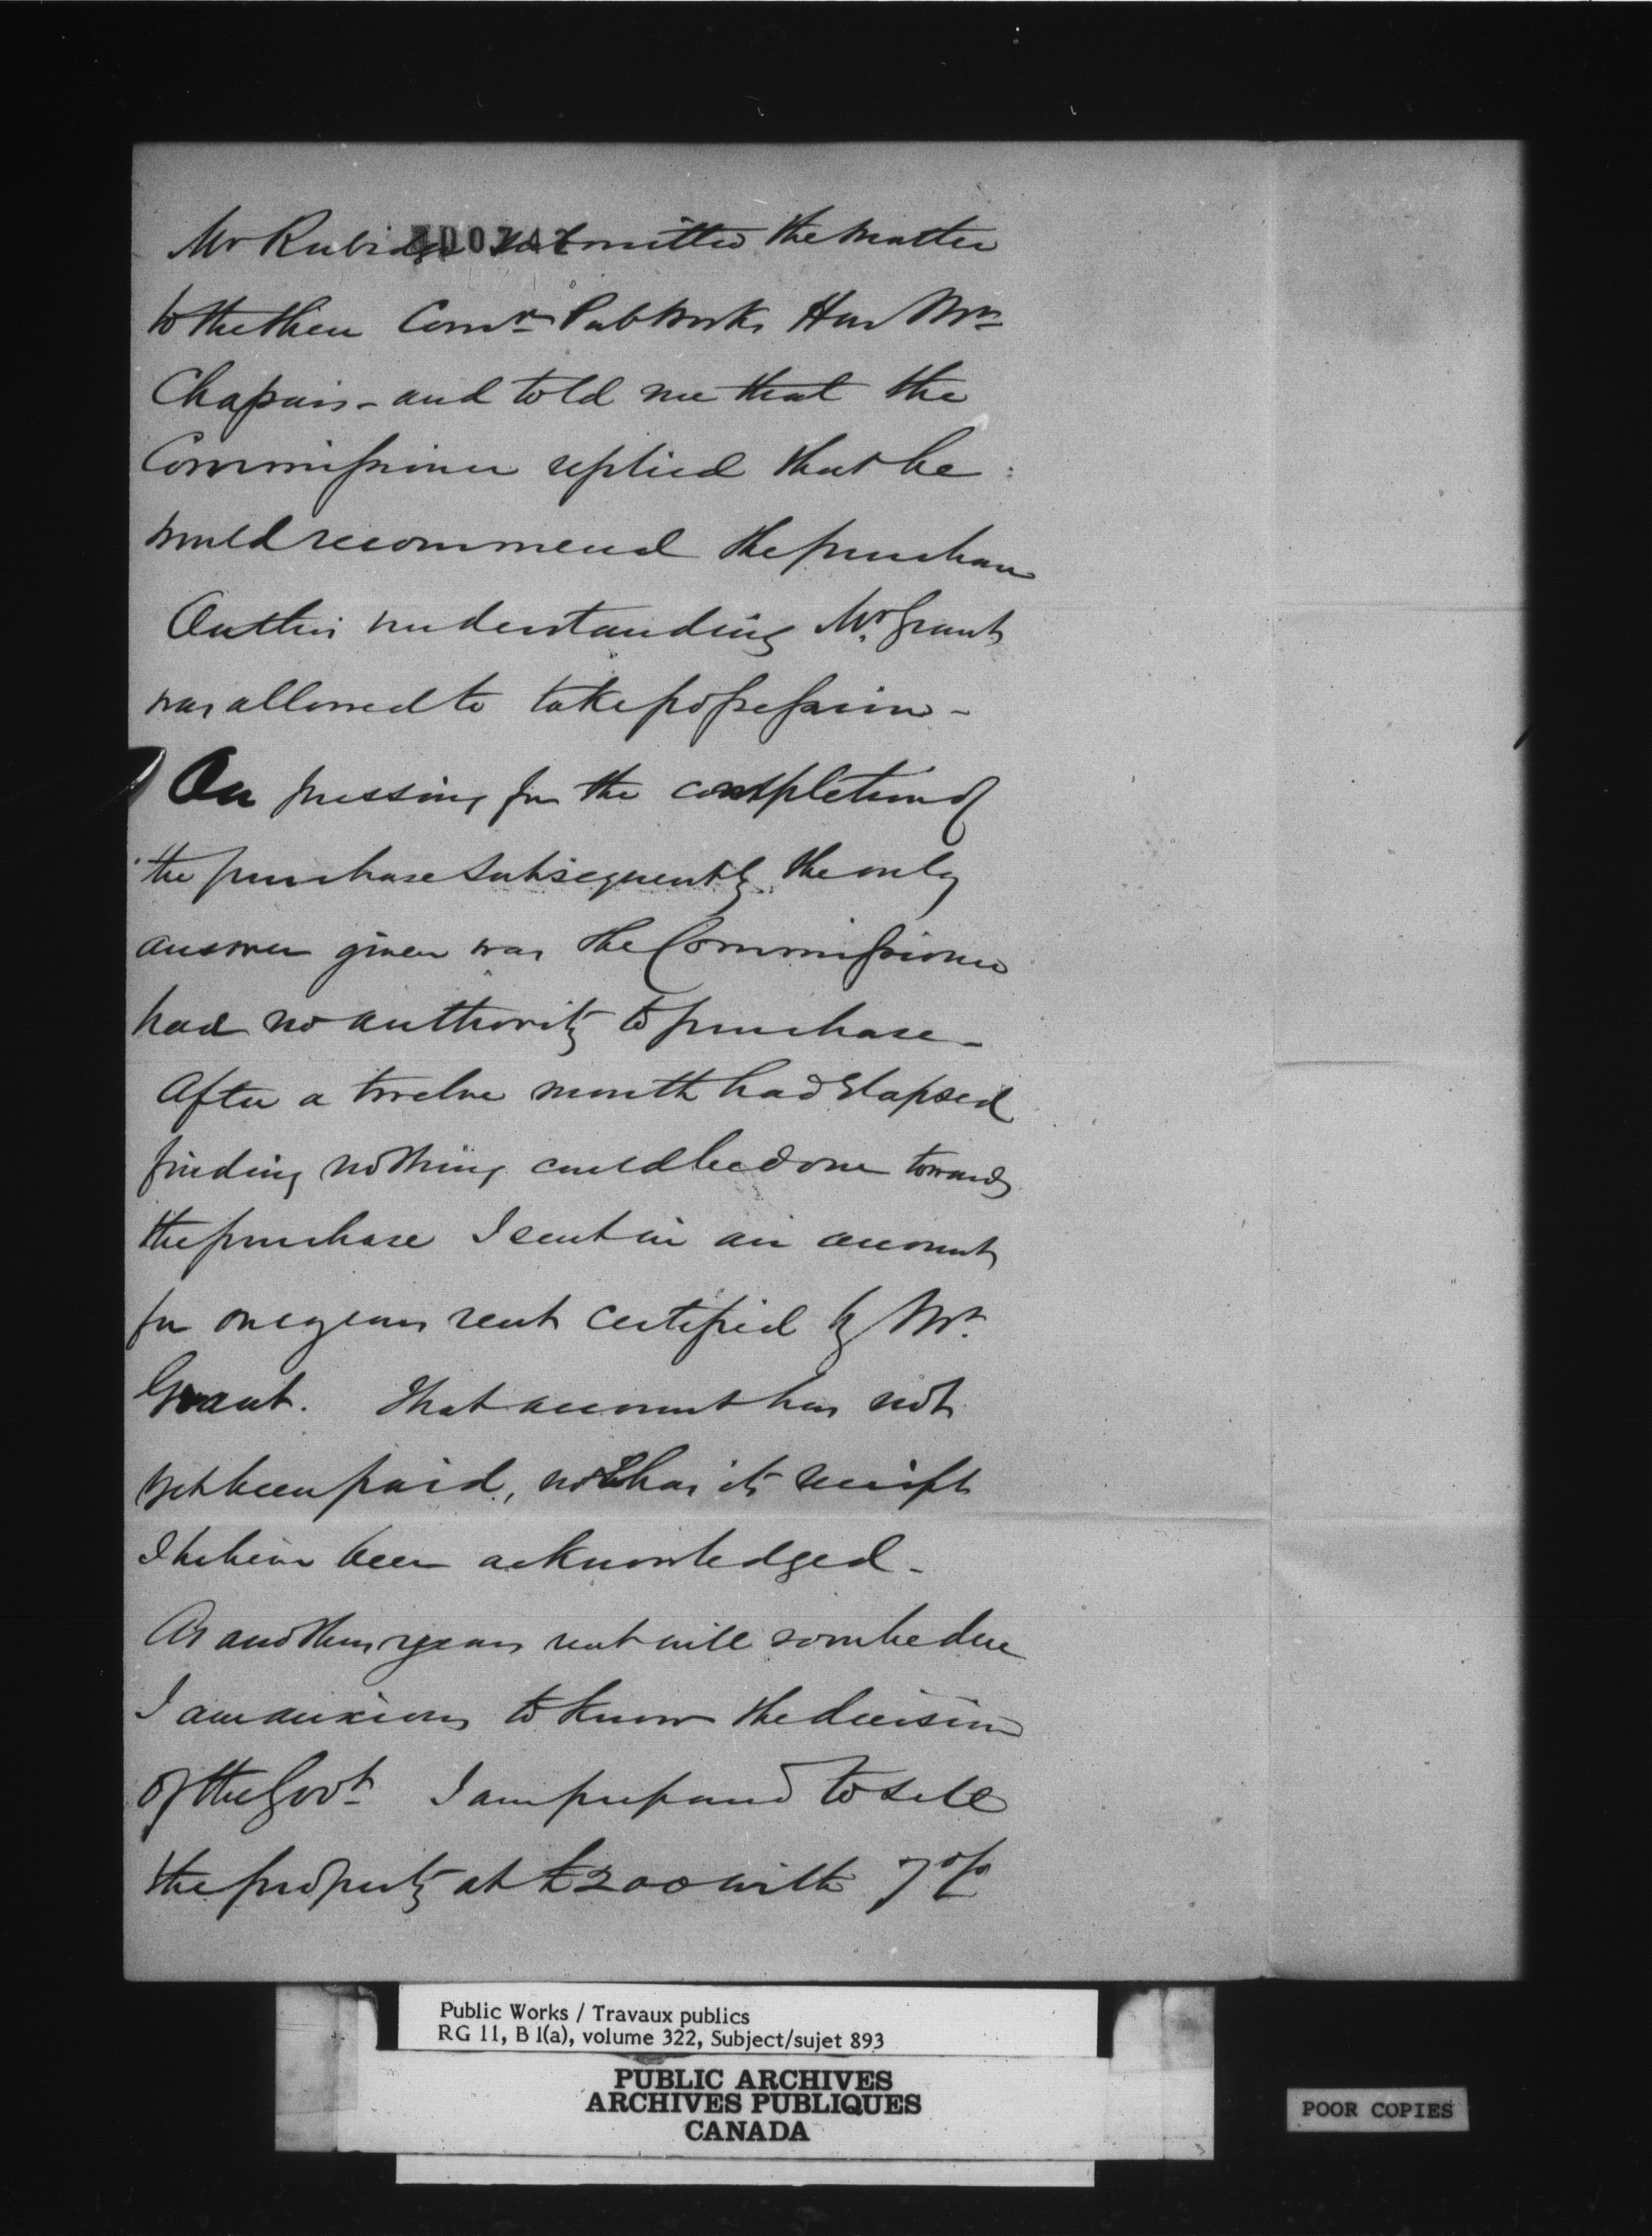 Mr Rubidge submitted the matter
to the then Comr. Pub Works Hon Mr.
Chapais - and told me that the
Commissioner replied that he
would recommend the purchase
On this understanding Mr. Grant
was allowed to take possession -
On pressing for the completion of
the purchase subsequently the only
answer given was the Commissioner
had no authority to purchase -
After a twelve month had elapsed
finding nothing could be done towards
the purchase I sent in an account
for one years rent certified by Mr.
Grant. That account has not
yet been paid, nor has its receipt
I believe been acknowledged -
As another years rent will soon be due
I am anxious to know the decision
of the Govt. I am prepared to sell
the property at £200 with 7 %
Public Works / Travaux publics
RG 11, B 1(a), volume 322, Subject/sujet 893
PUBLIC ARCHIVES
ARCHIVES PUBLIQUES
CANADA
POOR COPIES